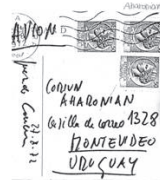 Aharonian
AVION
CORIUN
AHARONIAN
Casilla de correo 1328
MONTEVIDEO
URUGUAY
27.8.72